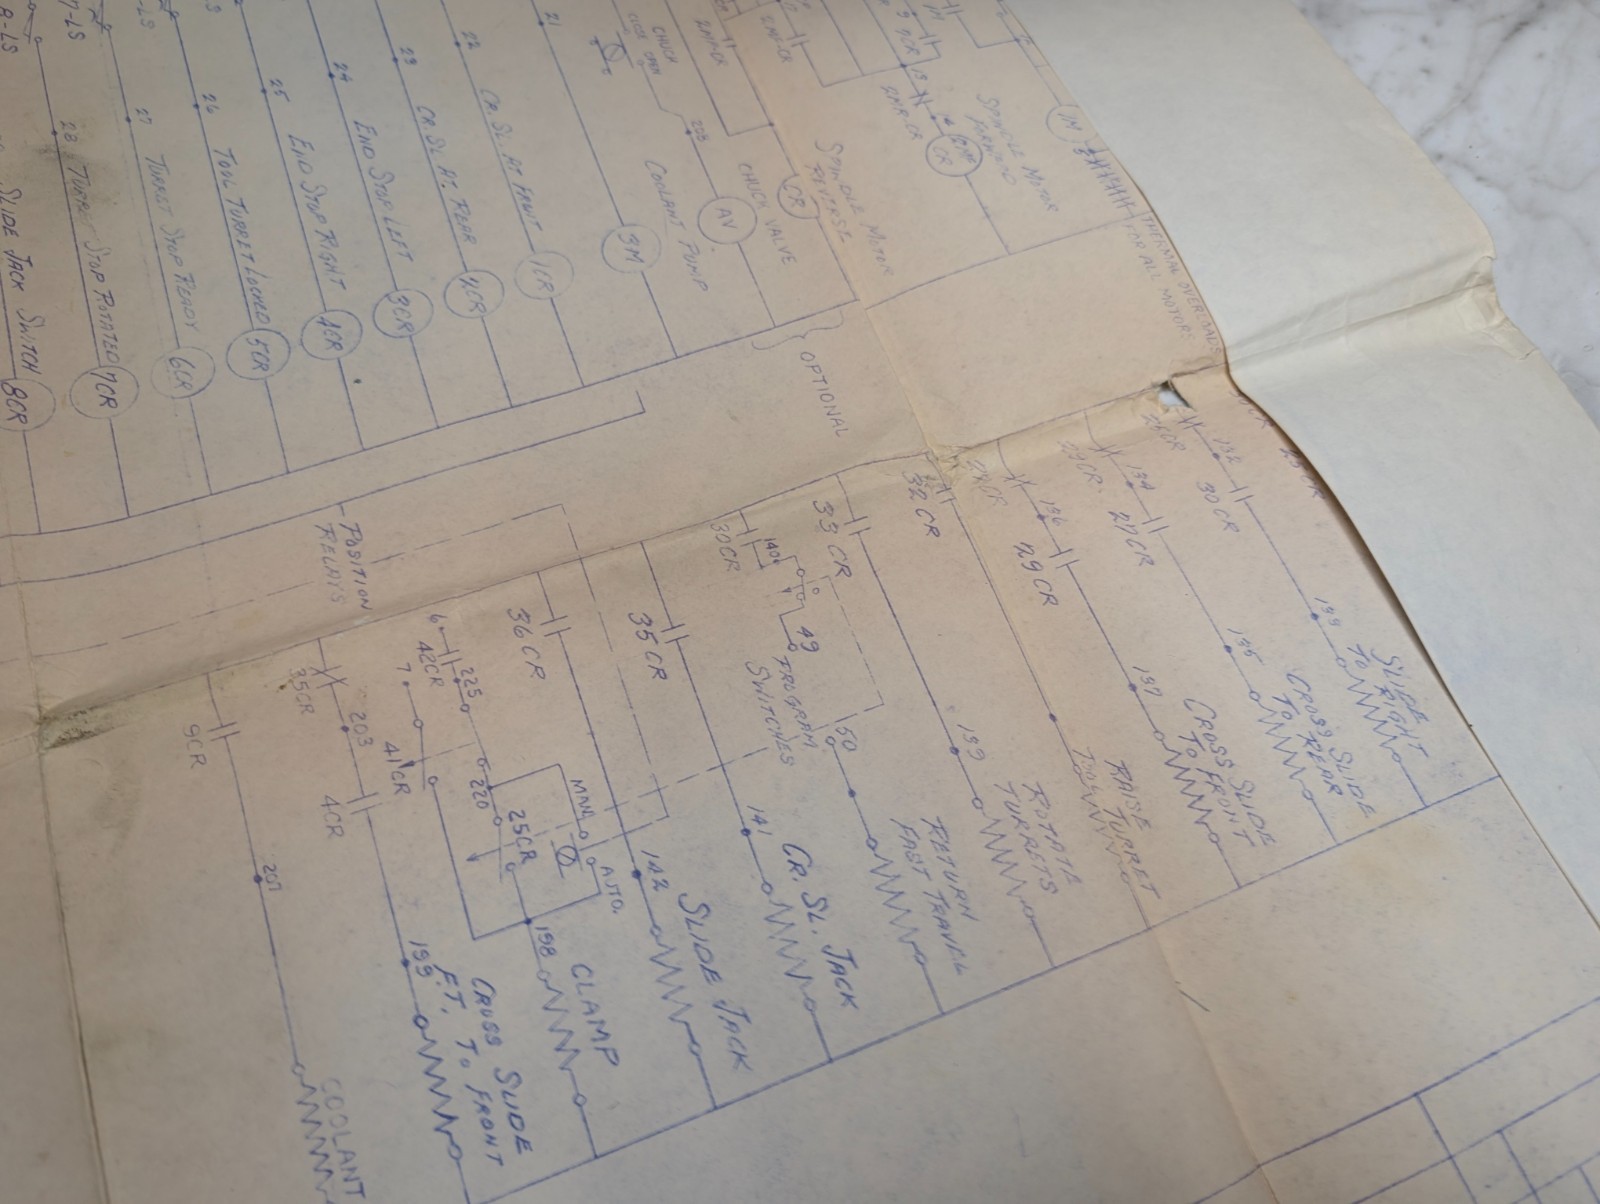 THERMAL OVERLOADS
FOR ALL MOTORS
1M
SPINDLE MOTOR
FORWARD
CR
13
9CR
SPINDLE MOTOR
REVERSE
CR
2MF-CR
CHUCK
CLOSE OPEN
208
CHUCK VALVE
AV
COOLANT PUMP
3M
21
22
CR. SL. AT FRONT
1CR
23
CR. SL. AT. REAR
2CR
24
END STOP LEFT
3CR
25
END STOP RIGHT
4CR
26
TOOL TURRET LOCKED
5CR
27
TURRET STOP READY
6CR
28
STOP ROTATED
7CR
SLIDE JACK SWITCH
8CR
7-LS
8-LS
OPTIONAL
POSITION
RELAYS
25CR
26CR
132
30CR
133
SLIDE
TO
RIGHT
134
27CR
135
CROSS SLIDE
TO
REAR
136
29CR
137
CROSS SLIDE
TO FRONT
32CR
RAISE
TURRET
33CR
139
ROTATE
TURRETS
30CR
140
49
PROGRAM
SWITCHES
50
RETURN
FAST TRAVEL
35CR
141
CR. SL. JACK
36CR
142
SLIDE JACK
6
42CR
225
7
41CR
220
25CR
MAN.
AUTO.
198
CLAMP
35CR
203
4CR
199
CROSS SLIDE
FT. TO FRONT
9CR
207
COOLANT